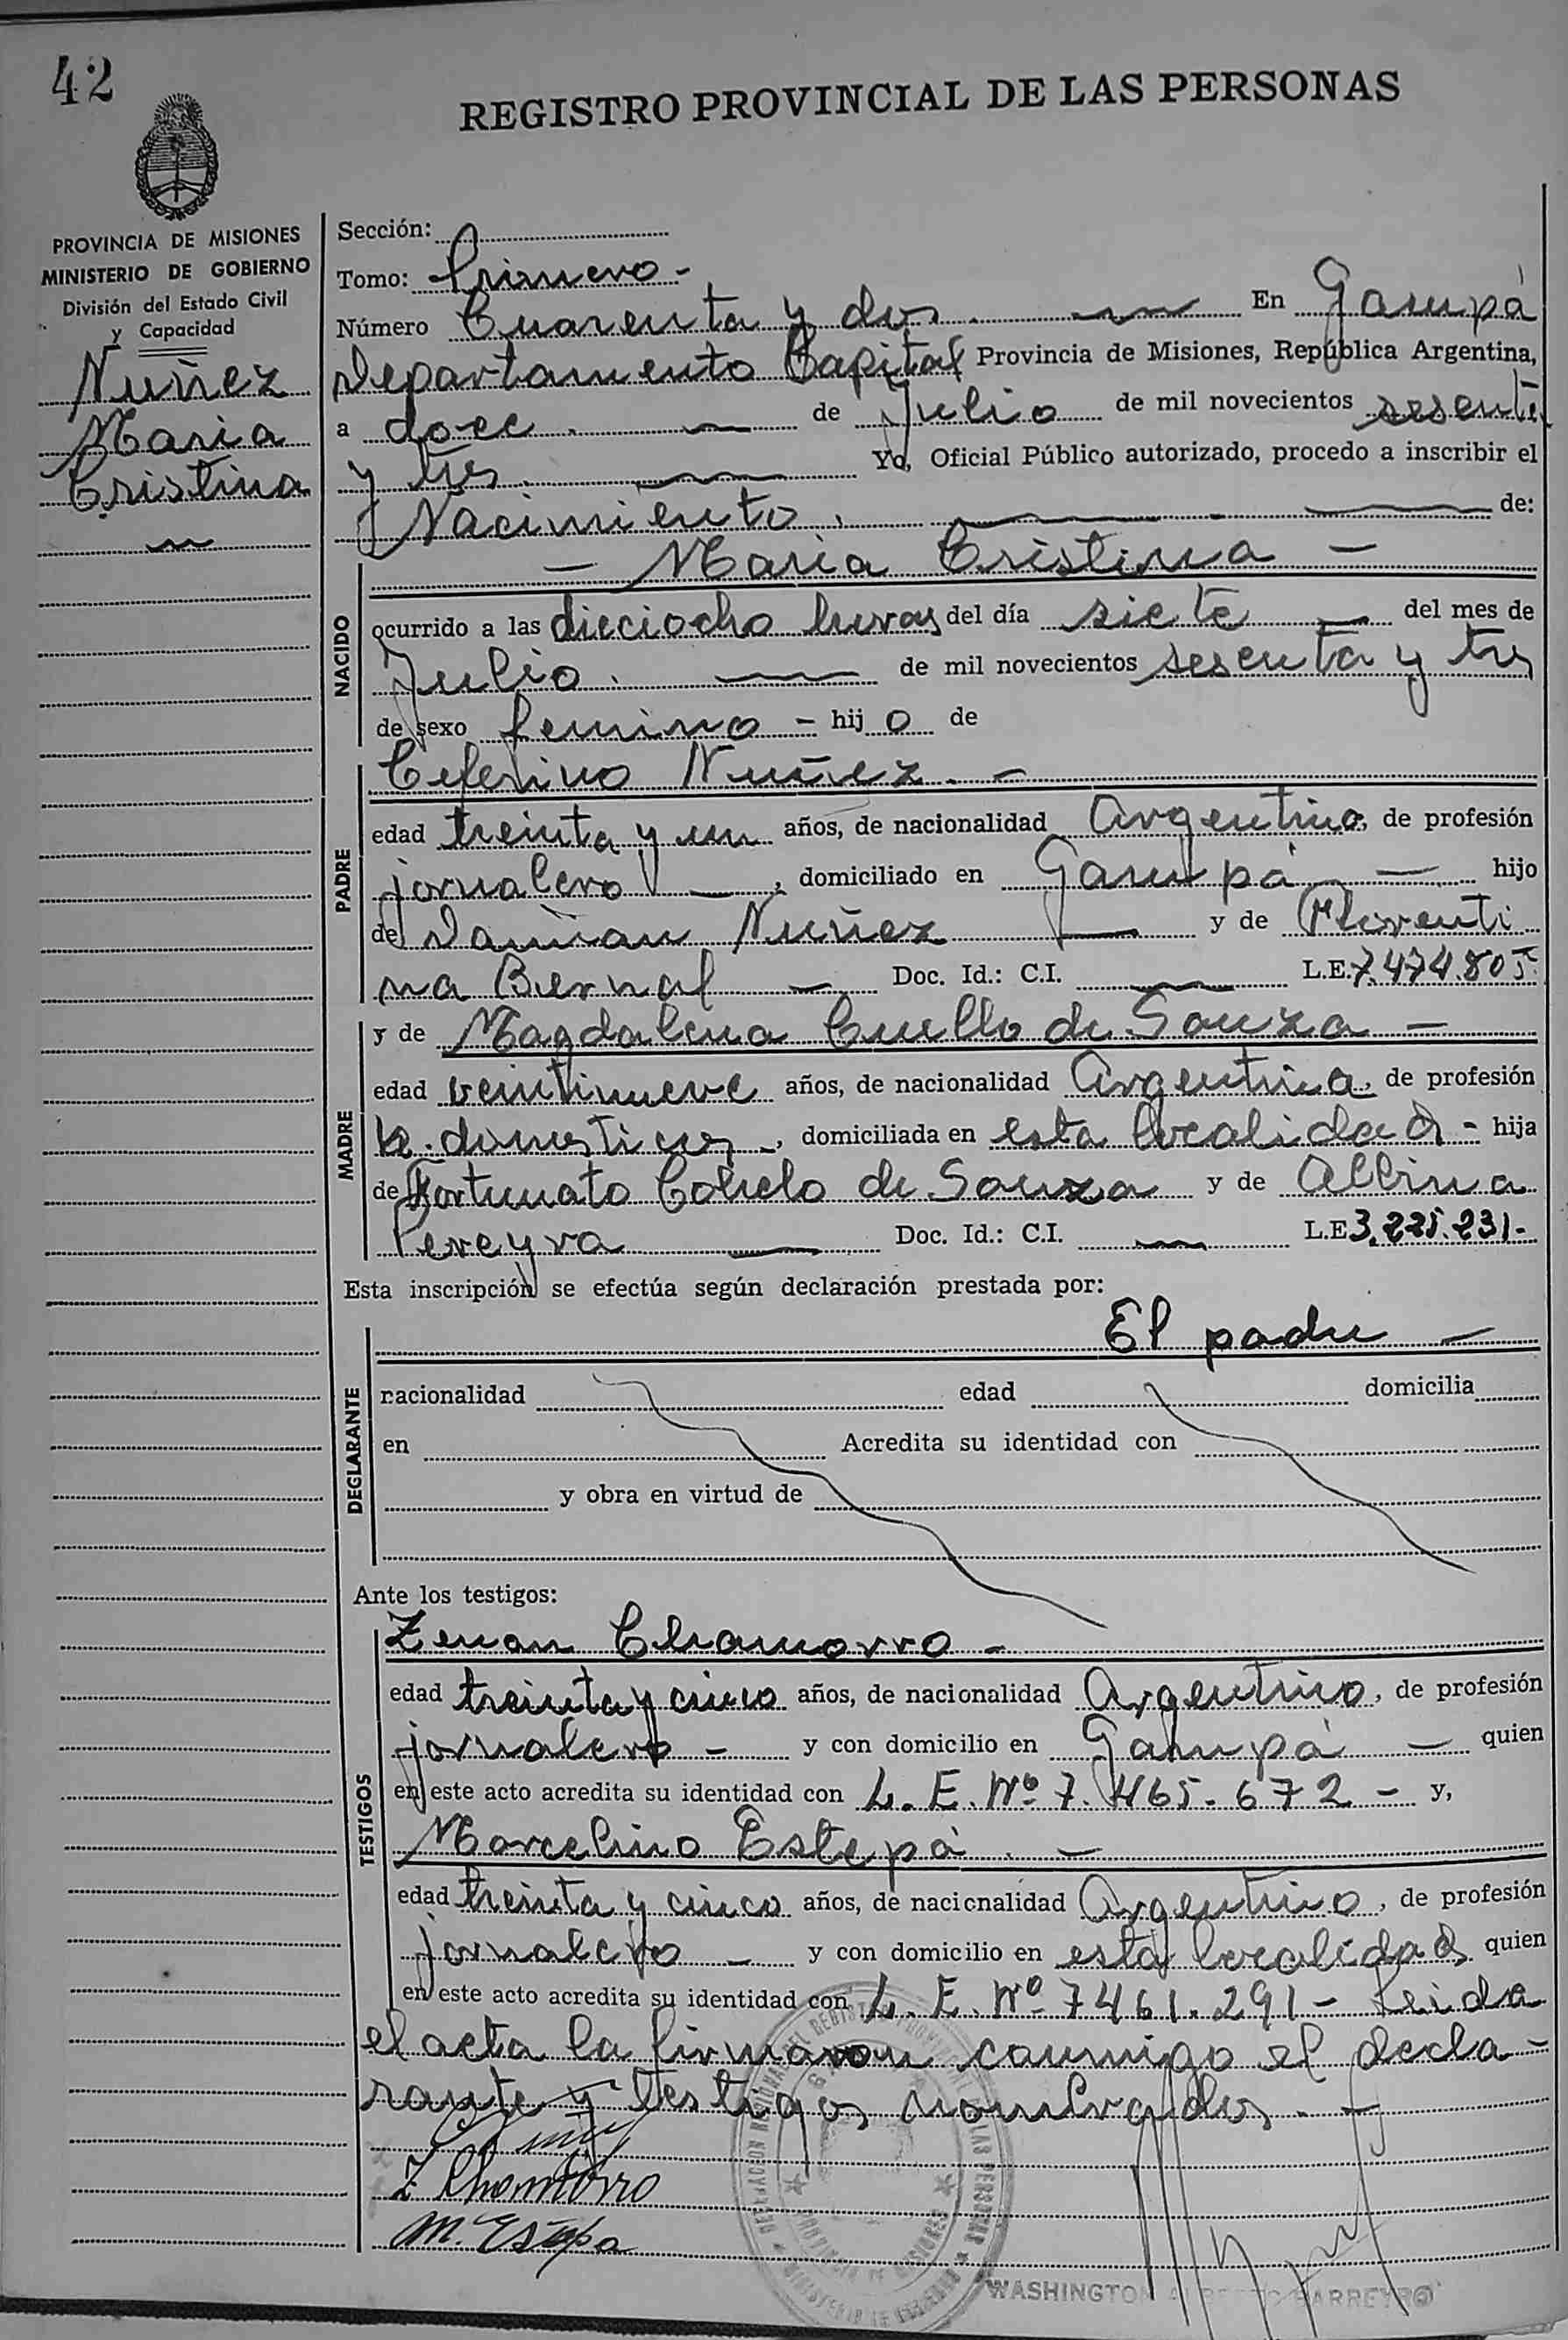 42
REGISTRO PROVINCIAL DE LAS PERSONAS
PROVINCIA DE MISIONES
MINISTERIO DE GOBIERNO
División del Estado Civil
y Capacidad
Nuñez
Maria
Cristina
Sección:
Tomo: Primero -
Número Cuarenta y dos. En Garupá
Departamento Capital Provincia de Misiones, República Argentina,
a doce. de Julio de mil novecientos sesenta
y tres. Yo, Oficial Público autorizado, procedo a inscribir el
Nacimiento. de:
- Maria Cristina -
NACIDO
ocurrido a las dieciocho horas del día siete del mes de
Julio. de mil novecientos sesenta y tres
de sexo femino - hij o de
Ceferino Nuñez. -
PADRE
edad treinta y un años, de nacionalidad Argentino, de profesión
jornalero -, domiciliado en Garupá - hijo
de Damian Nuñez y de Florenti
na Bernal - Doc. Id.: C.I. L.E. 7.474.805
MADRE
y de Magdalena Cuello de Souza -
edad veintinueve años, de nacionalidad Argentina, de profesión
q. domesticos -, domiciliada en esta localidad - hija
de Fortunato Cohelo de Souza y de Albina
Pereyra Doc. Id.: C.I. L.E 3.225.231-
Esta inscripción se efectúa según declaración prestada por:
El padre -
DEGLARANTE
racionalidad edad domicilia
en Acredita su identidad con
y obra en virtud de
Ante los testigos:
TESTIGOS
Zenon Chamorro -
edad treinta y cinco años, de nacionalidad Argentino, de profesión
jornalero - y con domicilio en Garupá - quien
en este acto acredita su identidad con L. E. Nº 7.465.672 - y,
Marcelino Estepá. -
edad treinta y cinco años, de nacionalidad Argentino, de profesión
jornalero - y con domicilio en esta localidad quien
en este acto acredita su identidad con L. E. Nº 7461.291 - Leida
el acta la firmaron conmigo el decla-
rante y testigos nombrados. -
Z Chamorro
M. Estepa
WASHINGTON ALBERTO BARREYRO